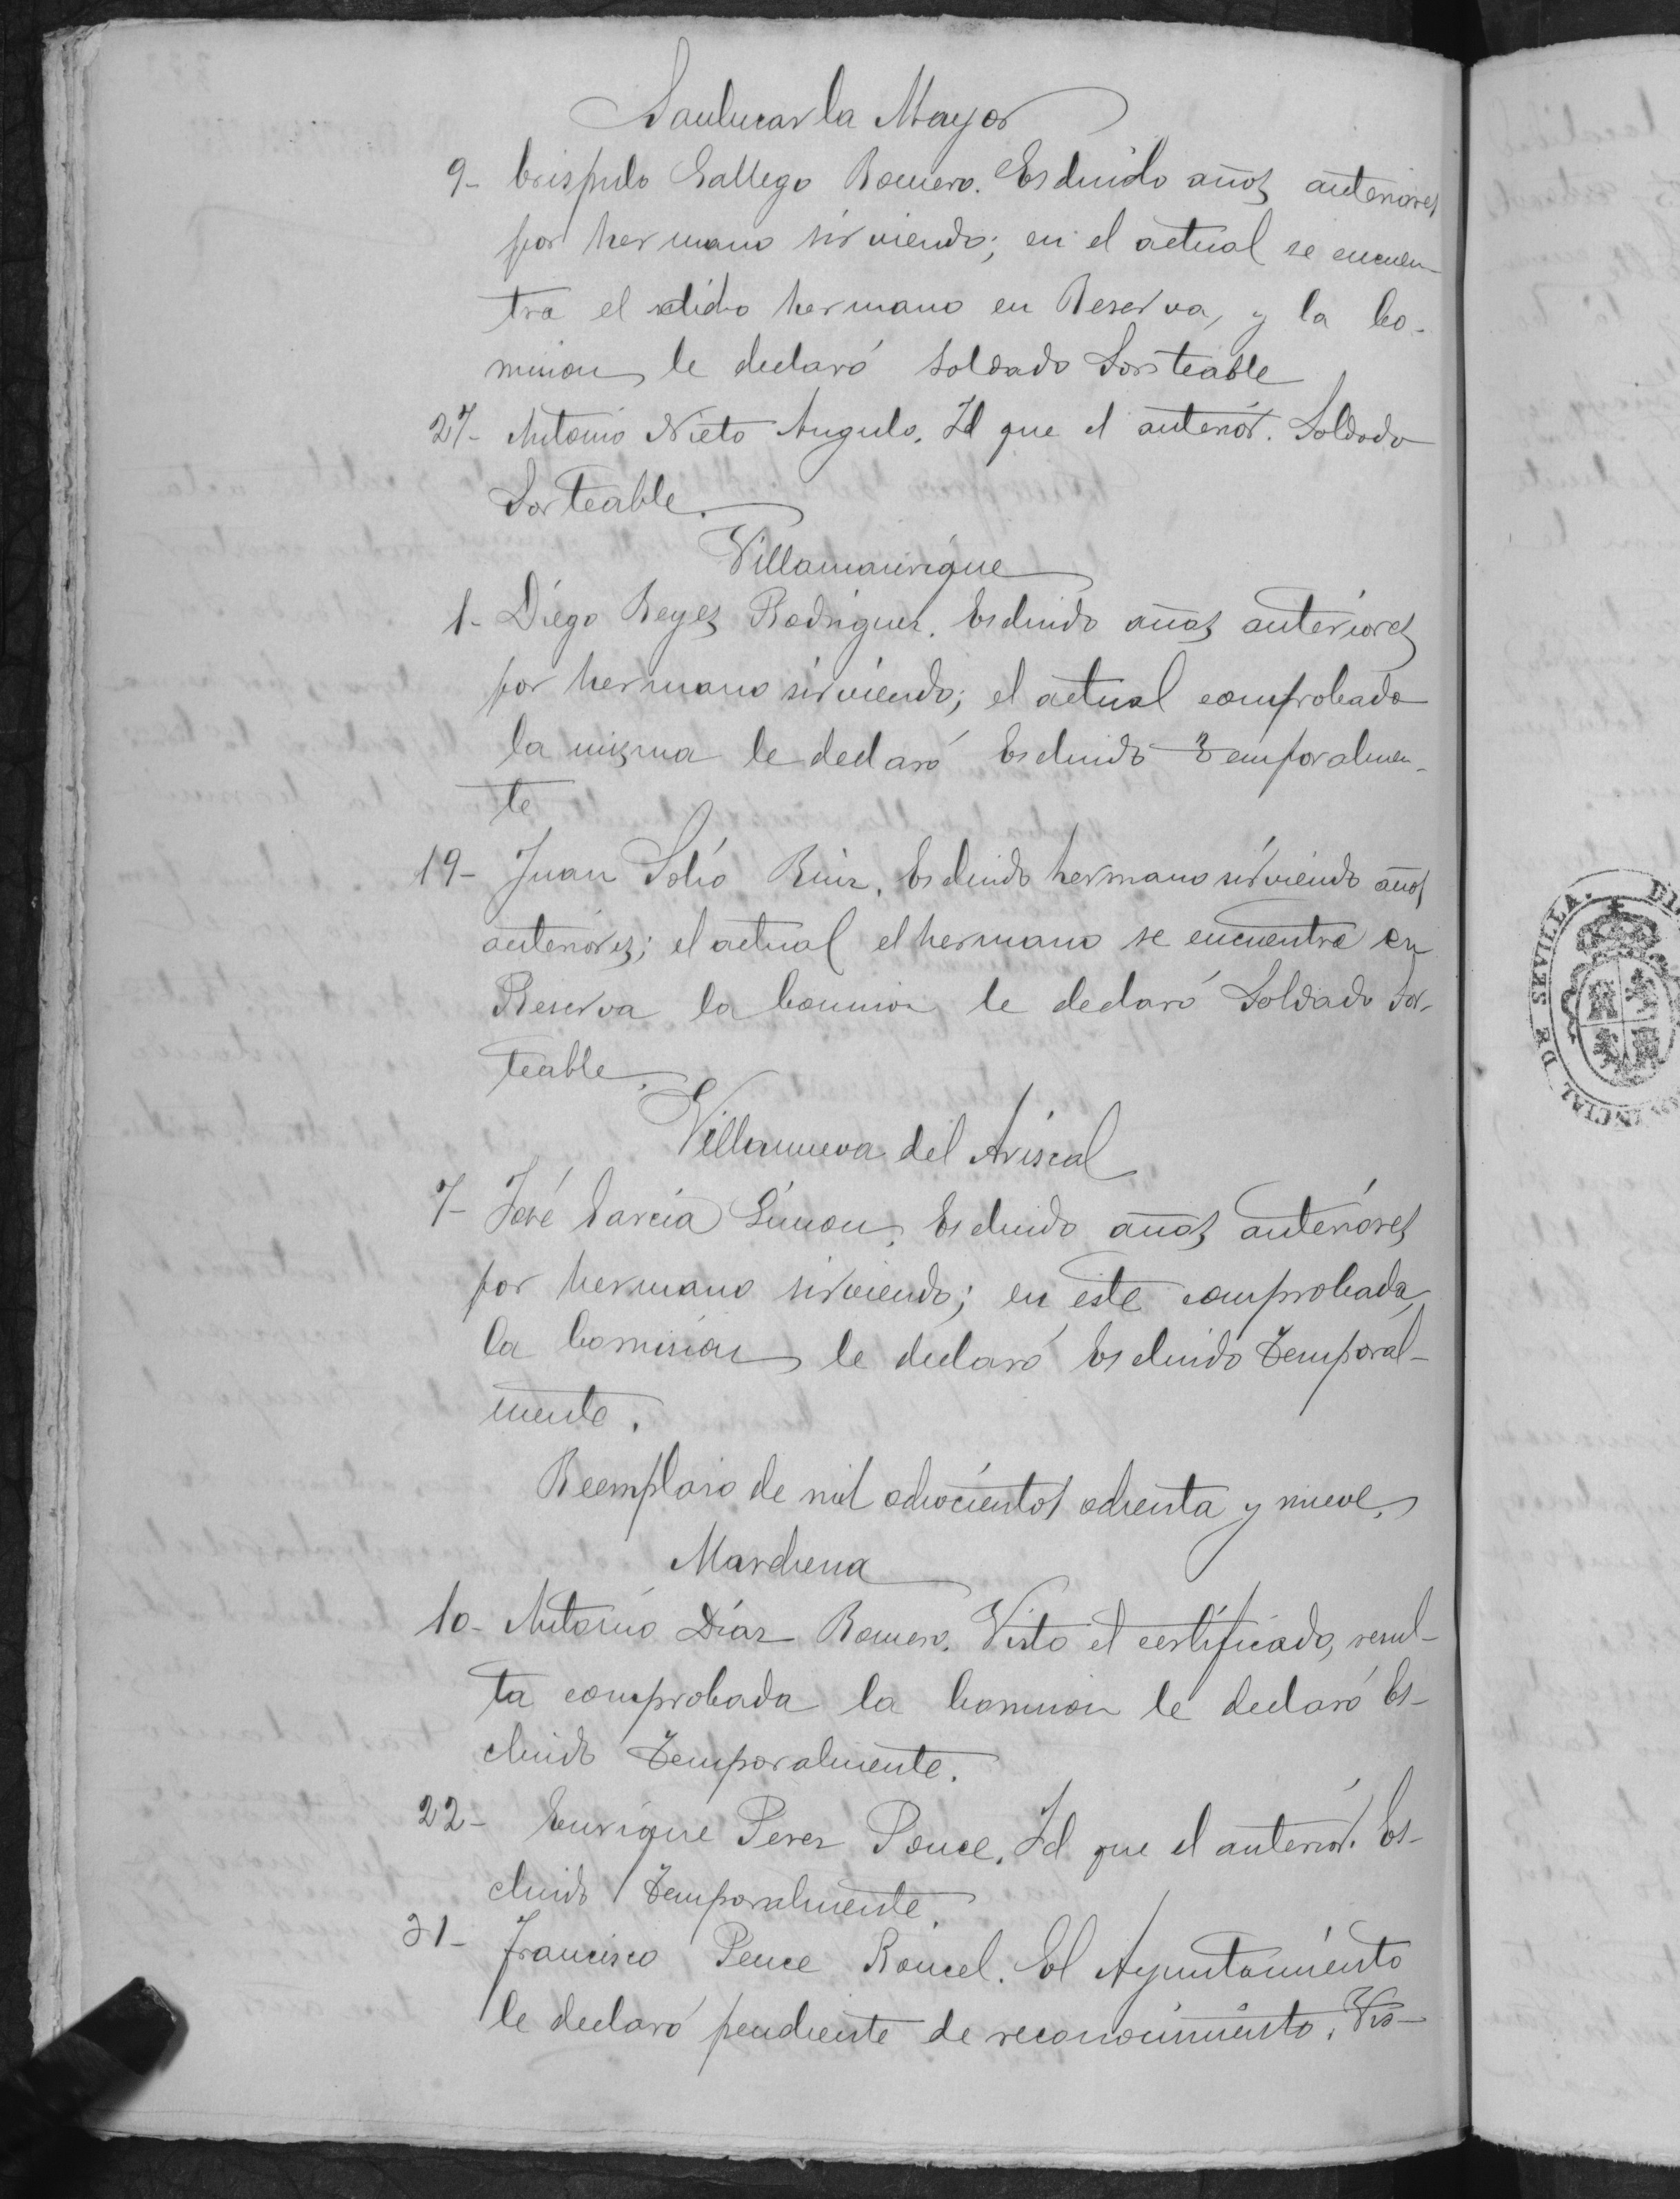 Sanlucar la Mayor
9- Crispulo Gallego Romero. Escluido años anteriores
por hermano sirviendo; en el actual se encuen-
tra el dicho hermano en Reserva, y la Co-
mision le declaró Soldado Sorteable
27- Antonio Nieto Angulo. Id que el anterior. Soldado
Sorteable.
Villamanrique
1- Diego Reyes Rodriguez. Escluido años anteriores
por hermano sirviendo; el actual comprobada
la misma le declaró Escluido Temporalmen-
te
19- Juan Solís Ruiz. Escluido hermano sirviendo años
anteriores; el actual el hermano se encuentra en
Reserva la Comision le declaró Soldado Sor-
teable.
Villanueva del Ariscal
7- José García Limon. Escluido años anteriores
por hermano sirviendo; en este comprobada
la Comision le declaró Escluido Temporal-
mente.
Reemplazo de mil ochocientos ochenta y nueve.
Marchena
10- Antonio Díaz Romero. Visto el certificado, resul-
ta comprobada la Comision le declaró Es-
cluido Temporalmente.
22- Enrique Perez Ponce. Id que el anterior. Es-
cluido Temporalmente.
31- Francisco Ponce Roncel. El Ayuntamiento
le declaró pendiente de reconocimiento. Vis-
DE SEVILLA.